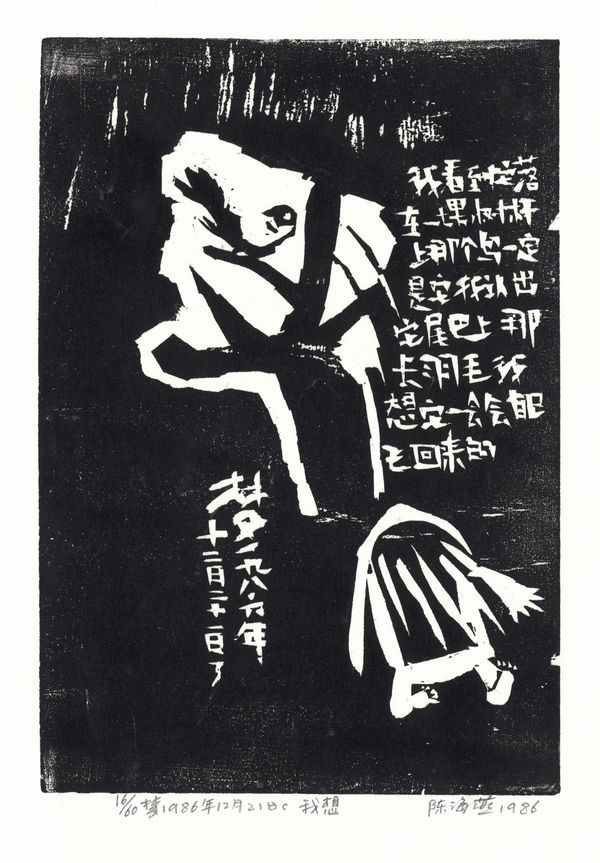 我看到它落
在一果树杆
上那个鸟一定
是它我认出
它尾巴上那
长羽毛我
想它一会会能
飞回来的
梦一九八六年
十二月二十一日了
16/60 梦1986年12月21日c 我想 陈海燕 1986